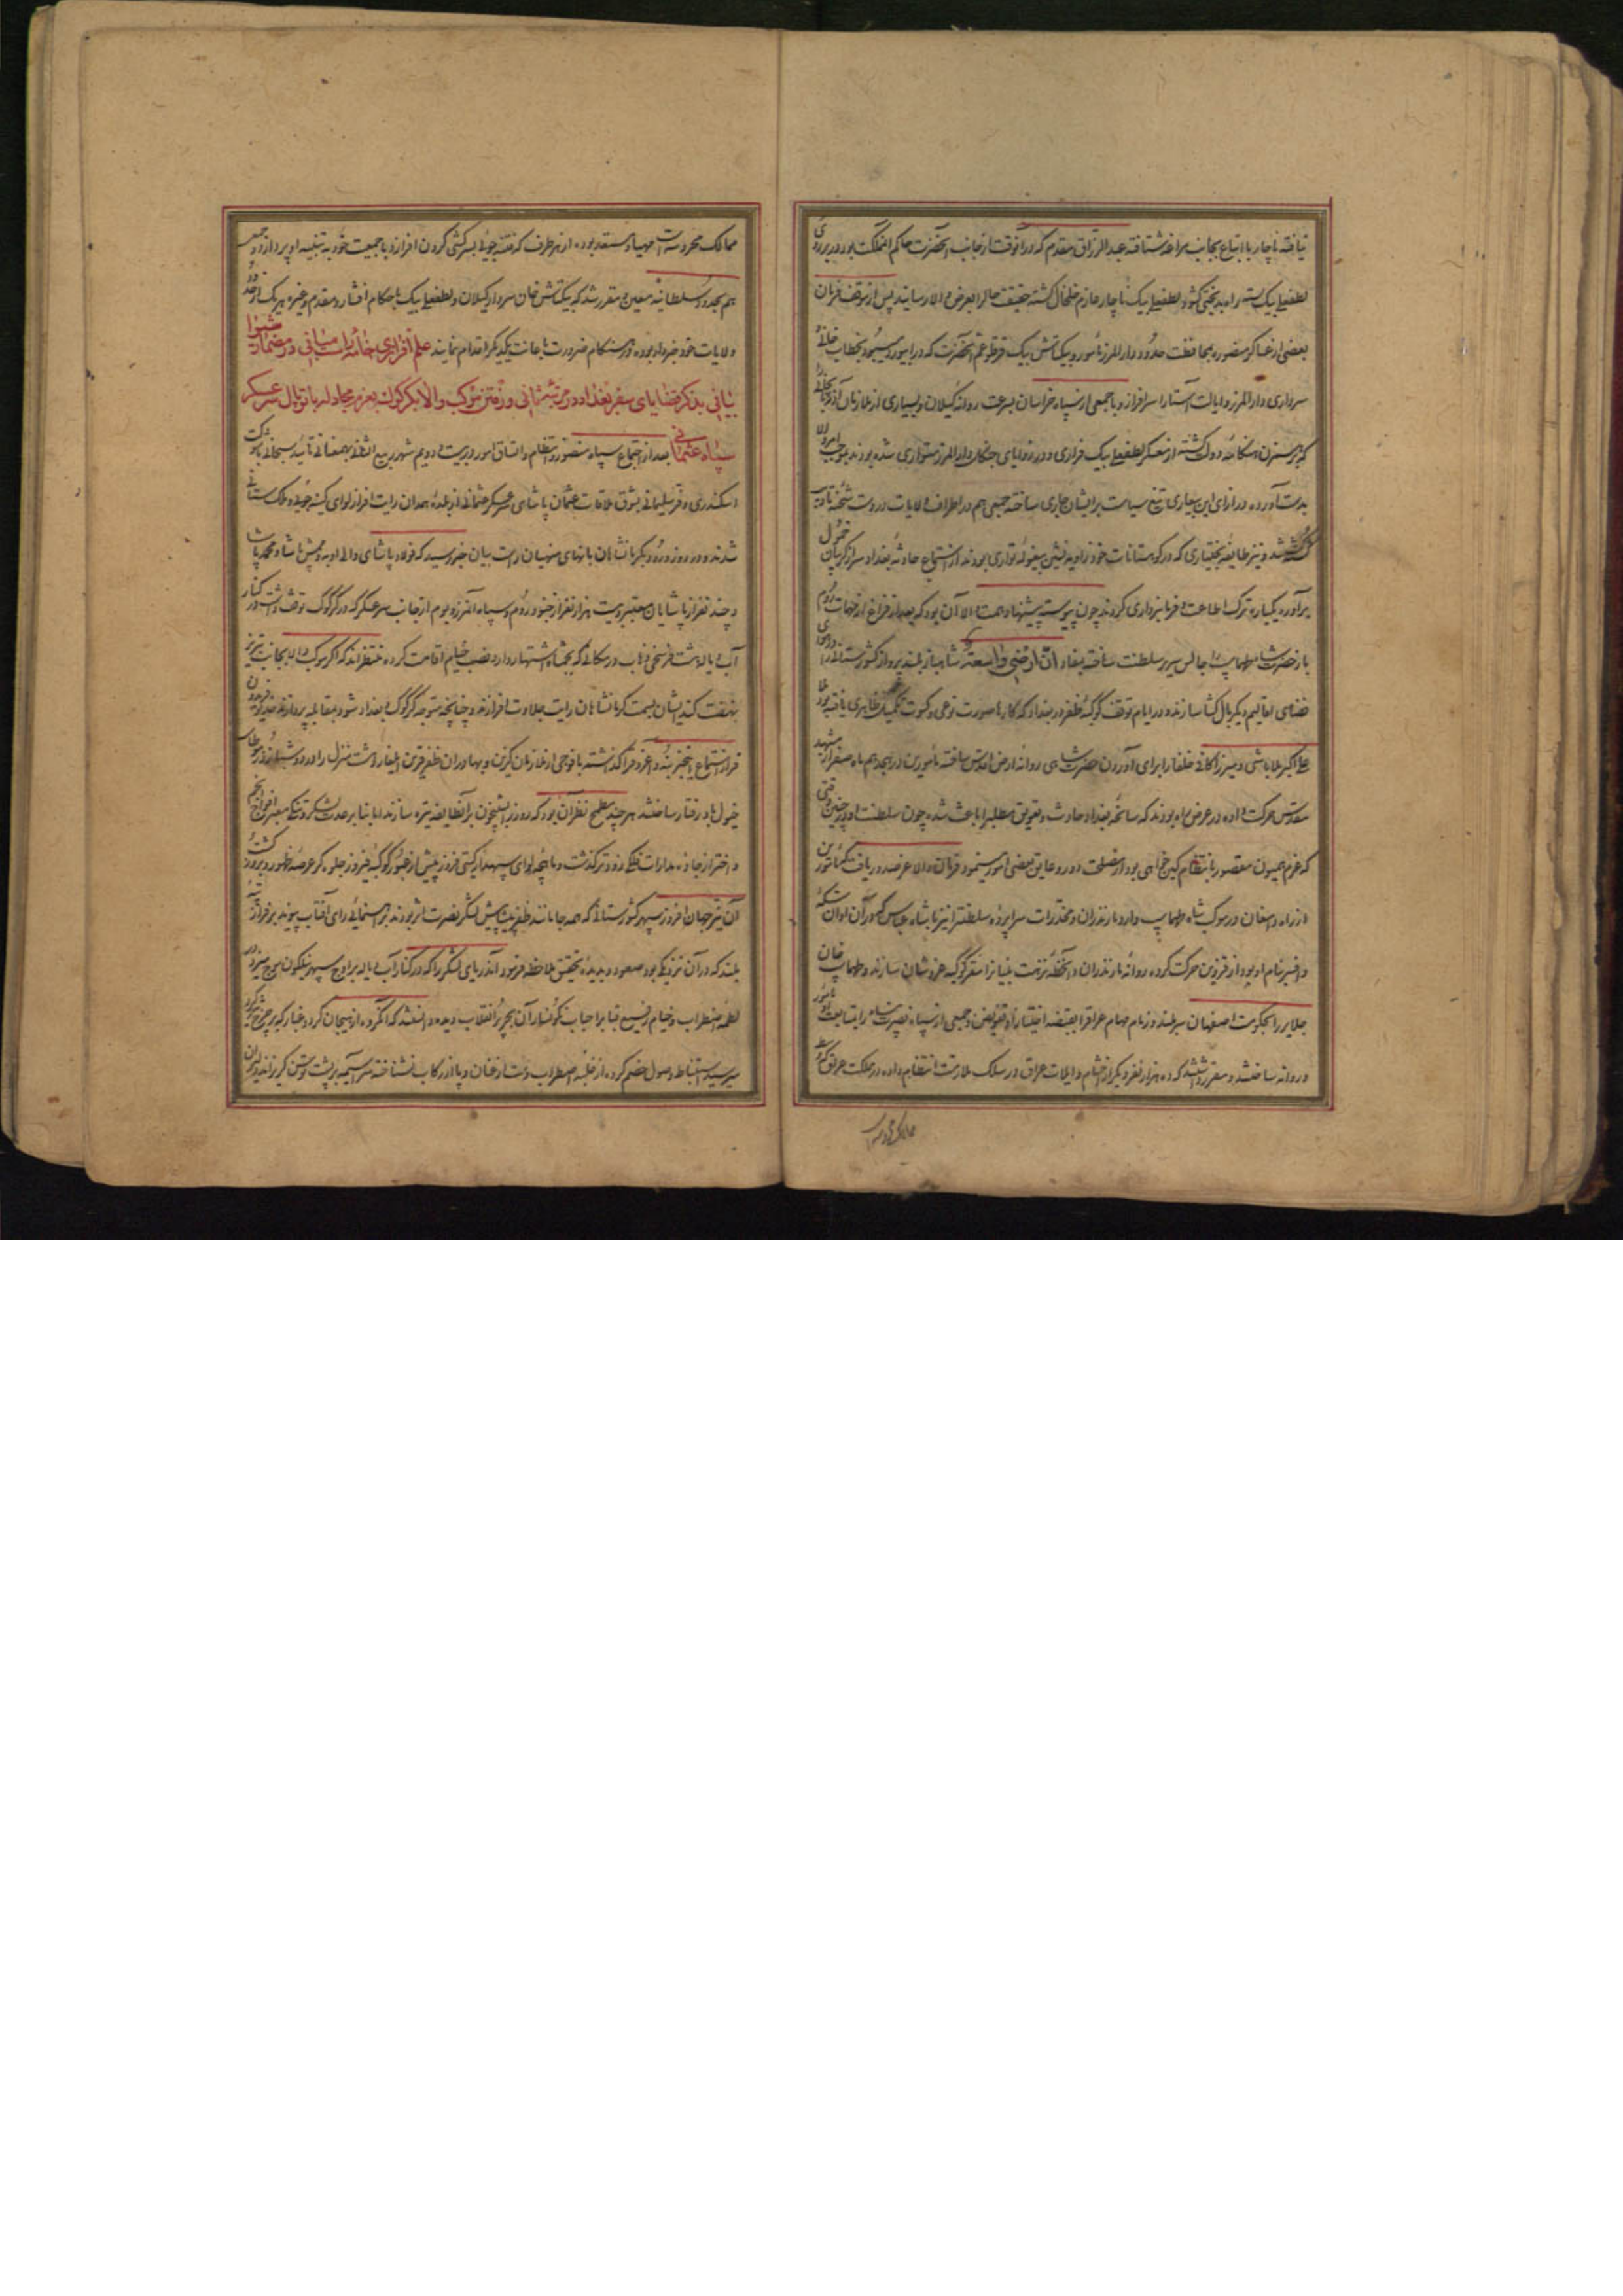 نیافته ناچار با اتباع بجانب مراغه شتافته عبدالرزاق مقدم که در آنوقت از جانب آنحضرت حاکم آنمملکت بود در بر روی
لطفعلی بیک بسته راه بدبختی کشود لطفعلی بیک ناچار عازم خلخال کشته حقیقت حال را بعرض والا رسانید پس از موقف فرمان
بعضی از عساکر منصوره بمحافظت حدود دارالمرز مأمور و بیکتاش بیک قرقلو عم آنحضرت که در ابیورد میبود بخطاب خانی و
سرداری دارالمرز و ایالت آستارا سرافراز و با جمعی از سپاه خراسان بسرعت روانه کیلان و بسیاری از ملازمان آذربایجانی
که بر همزن هنکامه دولت کشته از معسکر لطفعلی بیک فراری و در زوایای جنکل دارالمرز متواری شده بودند بموجب امر والا
بدست آورده در ازای این بیعاری تیغ سیاست بر ایشان جاری ساخته جمعی هم در اطراف ولایات در دست شحنه تادیب
کشته شد و نیز طایفه بختیاری که در کوهستانات خود زاویه نشین بیغوله تواری بودند از استماع حادثه بغداد سر از کریبان خمول
برآورده یکباره ترک اطاعت و فرمانبرداری کردند چون پیوسته پیشنهاد همت والا آن بود که بعد از فراغ از مهمات روم
باز حضرت شاه طهماسب را جالس سریر سلطنت ساخته بمفاد ان ارضی واسعة شاهباز بلند پرواز کشورستانی را در هوای
فضای اقالیم دیکر بال کشا سازند و در ایام توقف کوکبه ظفر در بغداد که کارها صورت نوعی و کسوت تکمیل ظاهری یافته بود ملا
علی اکبر ملاباشی و میرزا کافی خلفا را برای آوردن حضرت شاهی روانه ارض اقدس ساخته مأمورین در هجدهم ماه صفر از مشهد
مقدس حرکت داده در عرض راه بودند که سانحه بغداد حادث و تعویق مطلب را باعث شده چون سلطنت او در چنین وقتی
که عزم همیون مقصور بانتظام کین خواهی بود از مصلحت دور و عایق بعضی امور مینمود فرمان والا عز صدور یافت که مأمورین
از راه دامغان در موکب شاه طهماسب وارد مازندران و مخدرات سراپرده سلطنت را نیز با شاه عباس که در آن اوان سکه
و افسر بنام او بود از قزوین حرکت کرده روانه مازندران و آنخطه نزهت بنیانرا مستقر کوکبه عز و شان سازند و طهماسب خان
جلایر را بحکومت اصفهان سربلند و زمام مهام عراقرا بقبضه اختیار او تفویض و جمعی از سپاه نصرت پناه را بمتابعت او مأمور
و روانه ساختند و مقرر داشتند که ده هزار نفر دیکر از احشام و ایلات عراق در سلک ملازمت انتظام داده در مملکت عراق که وسط
ممالک محروسه است
ممالک محروسه است مهیا و مستعد بوده از هر طرف که فتنه جوئی بسرکشی کردن افرازد با جمعیت خود به تنبیه او پردازد و جمعی
هم بحدود سلطانیه معین و مقرر شد که بیکتاش خان سردار کیلان و لطفعلی بیک با حکام افشار و مقدم و غیره هر یک از حدود
ولایات خود خبردار بوده در هنکام ضرورت باعانت یکدیکر اقدام نمایند علم افرازی خامه رایت مبانی در مضمار شیوا
بیانی بذکر قضایای سفر بغداد در مرتبه ثانی و رفتن موکب والا بکرکوک بعزم مجادله با توپال سرعسکر
سپاه عثمانی بعد از اجتماع سپاه منصور و انتظام و اتساق امور در بیست و دویم شهر ربیع الثانی بهمعنانی تائید سبحانی با شوکت
اسکندری و فر سلیمانی بشوق ملاقات عثمان پاشای سرعسکر عثمانی از بلده همدان رایت افراز لوای کینه جوئی و ملک ستانی
شدند و در روز ورود بکرمانشاهان بانهای منهیان راست بیان خبر رسید که فولاد پاشای والی ادنه و مش پاشا و محمد پاشا
و چند نفر از پاشایان معتبر و بیست هزار نفر از جنود روم و سپاه آنمرز و بوم از جانب سرعسکر که در کرکوک توقف داشت در کنار
آب دیاله هشت فرسخی ذهاب در مکانی که بجهناه اشتهار دارد نصب خیام اقامت کرده منتظرند که اکر موکب والا بجانب تبریز
نهضت کند ایشان بسمت کرمانشاهان رایت جلادت افرازند و چنانچه متوجه کرکوک و بغداد شود بمقابله پردازند خدیو فریدون
فر از استماع اینخبر بنه و اغروق را کذاشته با فوجی از ملازمان کزین و بهادران ظفر قرین ایلغار و هشت منزل را در دو شبانه روز مطاف
خیول باد رفتار ساختند هر چند مطمح نظر آن بود که روز بر ایشان بشبیخون بر آنطایفه تیره سازند اما بنا بر صعوبت مسلک و تنکی معبر افواج انجم
و اختر از جاده مدارات فلکی زودتر کذشت و ماهچه لوای سپهدار کیتی فروز پیش از عبور کوکبه فیروز جلوه کر عرصه ظهور و بروز کشت
آن نیر جهان افروز سپهر کشورستانی که همه جا مانند ظفر پیشاپیش لشکر نصرت اثر بودند بر هنمائی رای آفتاب پیوند بر فراز تپه
بلند که در آن نزدیکی بود صعود و بدیده تحقیق ملاحظه فرمود آندریای لشکر را که در کنار آب دیاله بر اوج سپهر نیلکون موج میزد در
لطمه اضطراب و خیام رفیع قباب را حباب نکونسار آن بحر پر انقلاب دیده دانستند که آنکروه از هیجان کرد و غبار که بر چرخ کرد
میرسید استنباط وصول خصم کرده از غلبه اضطراب دست از عنان و پا از رکاب نشناخته سراسیمه بر پشت توسن کریز انداختند دلیران